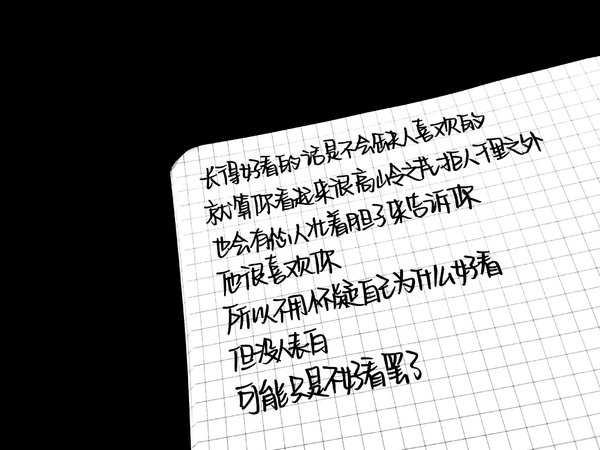 长得好看的话是不会缺人喜欢的
就算你看起来很高岭之花拒人千里之外
也会有的人壮着胆子来告诉你
他很喜欢你
所以不用怀疑自己为什么好看
但没人表白
可能只是不好看罢了